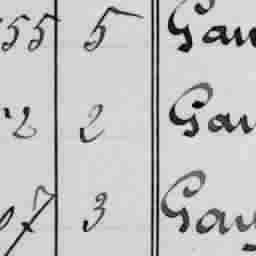 55 5 Gau
2 2 Gau
07 3 Gau